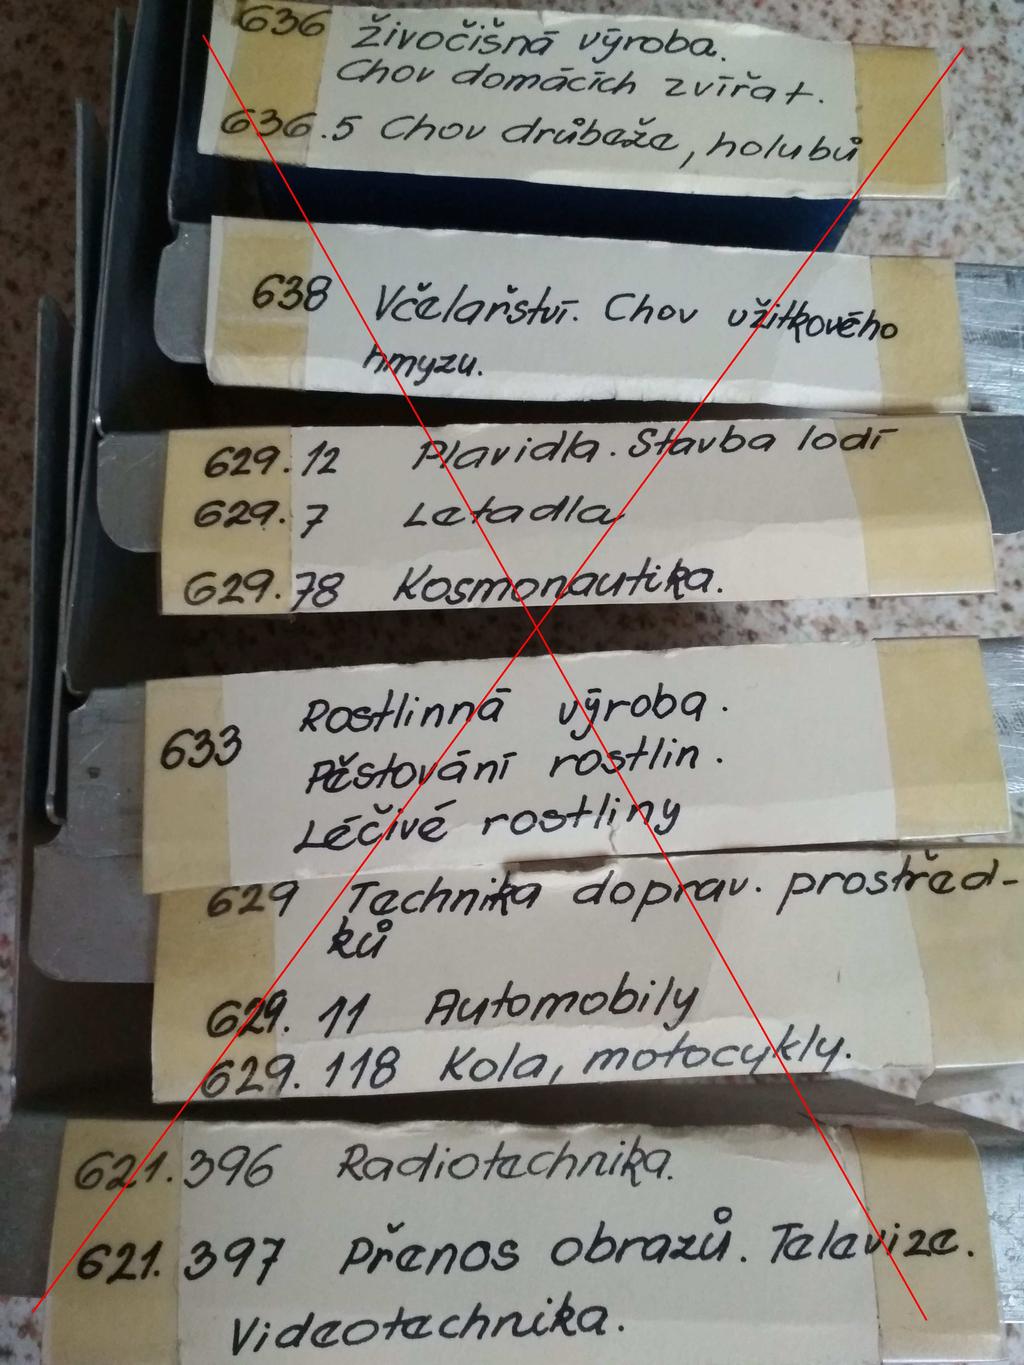 636 Živočišná výroba.
Chov domácích zvířat.
636.5 Chov drůbeže, holubů
638 Včelařství. Chov užitkového
hmyzu.
629.12 Plavidla. Stavba lodí
629.7 Letadla
629.78 Kosmonautika.
633 Rostlinná výroba.
Pěstování rostlin.
Léčivé rostliny
629 Technika doprav. prostřed-
ků
629.11 Automobily
629.118 Kola, motocykly.
621.396 Radiotechnika.
621.397 Přenos obrazů. Televize.
Videotechnika.